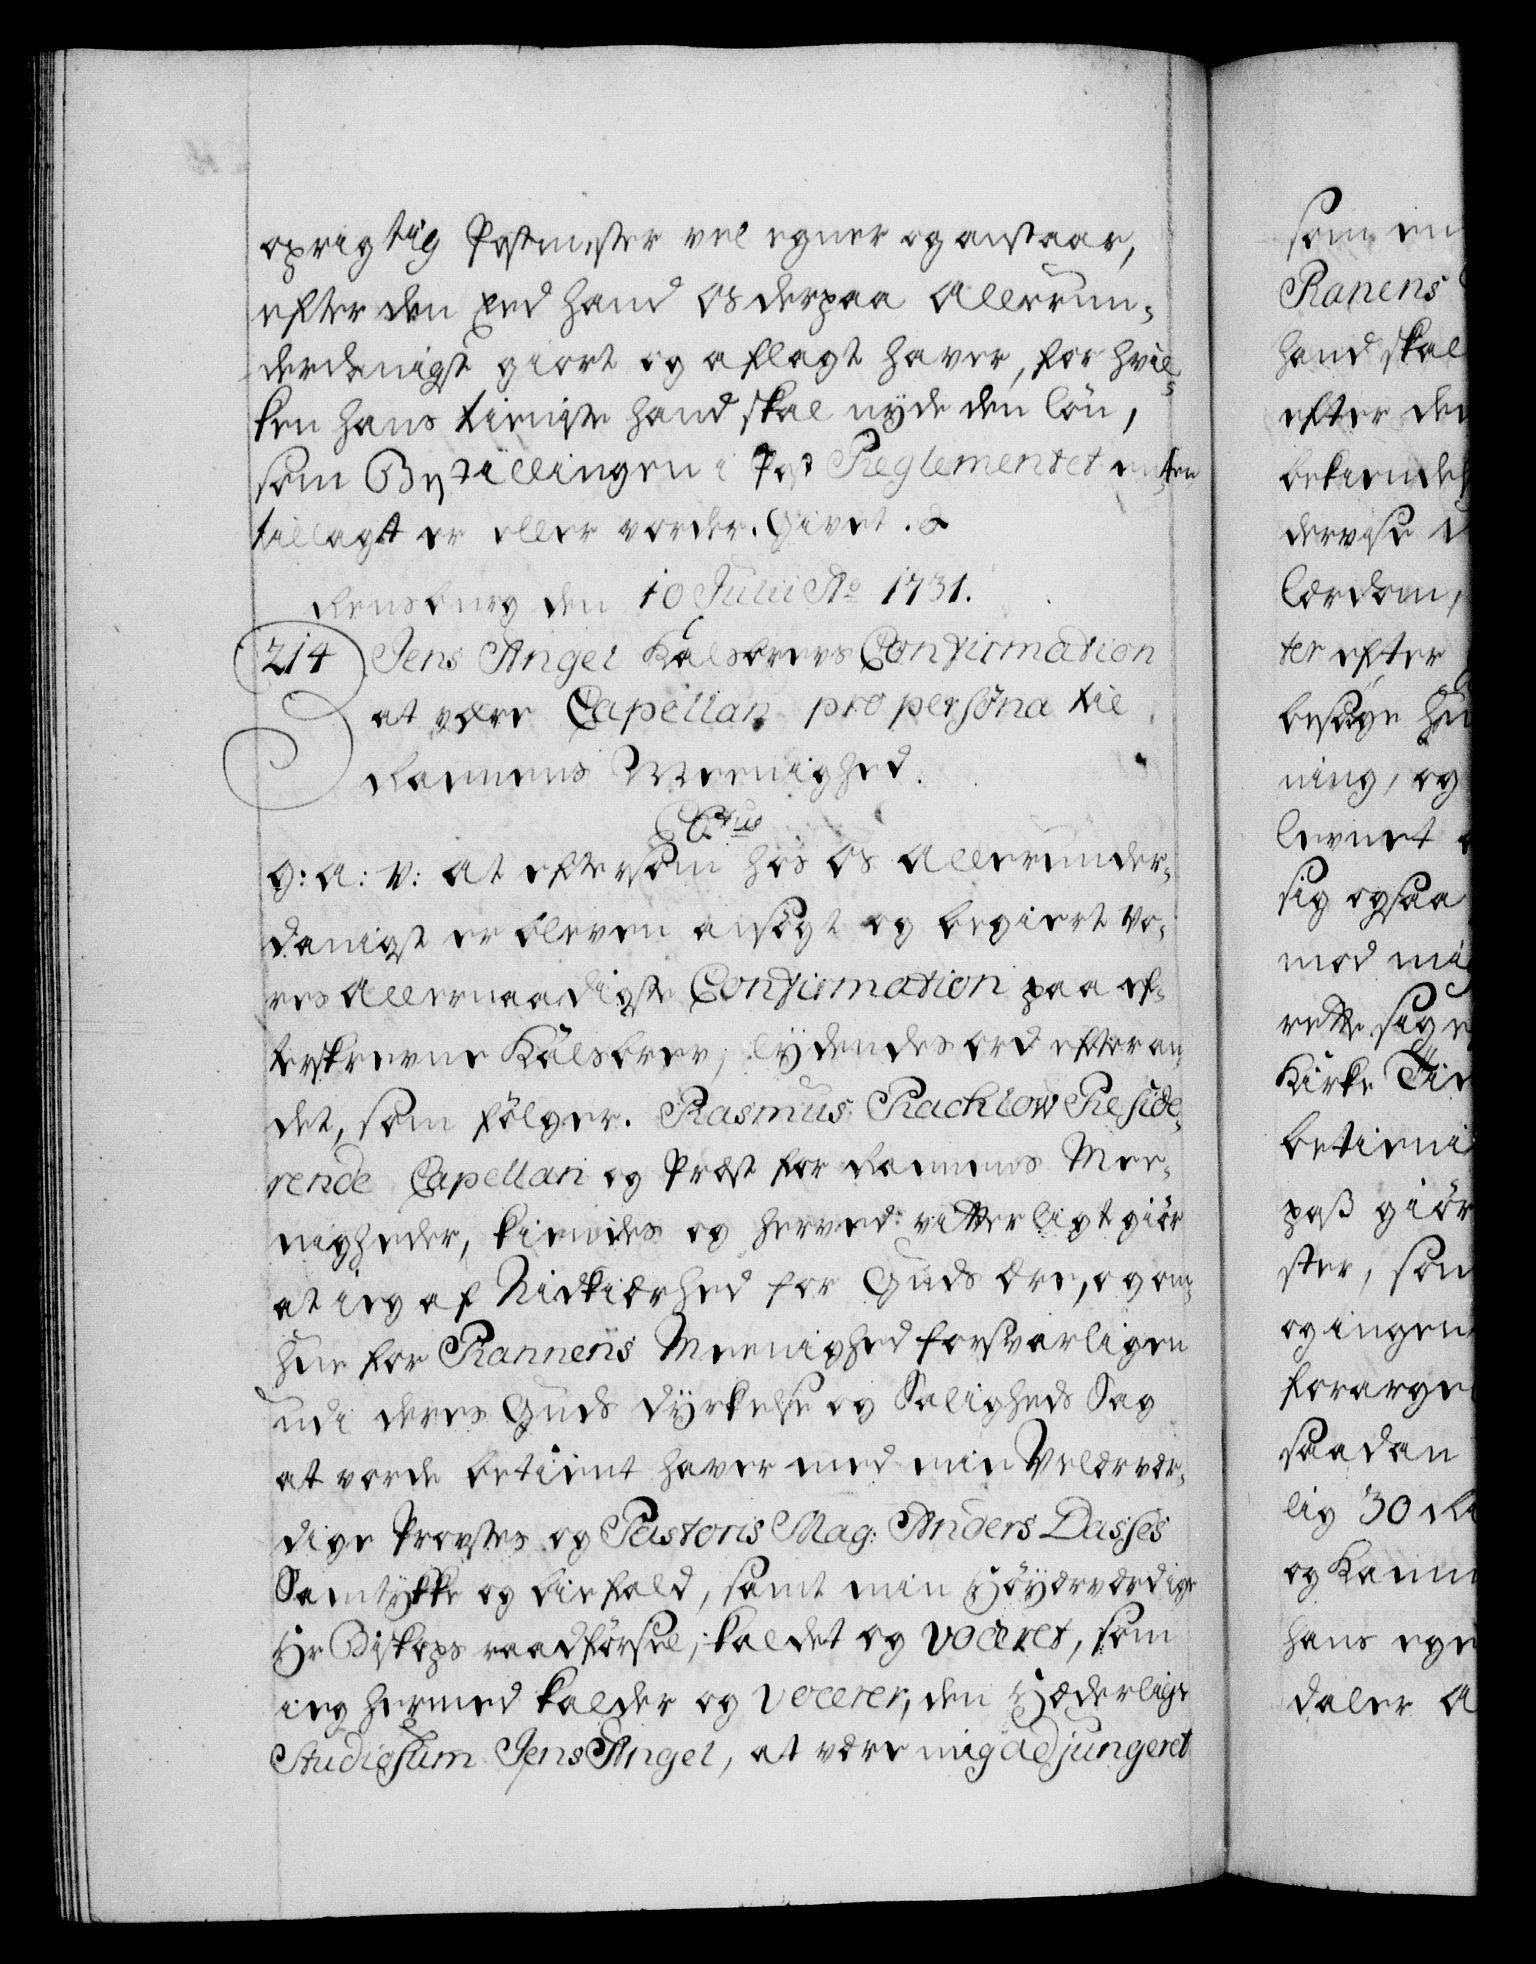 oprigtig Postmester vel egner og anstaar,
efter den Eed hand os derpaa allerun-
derdanigst giort og aflagt haver, for hvil-
ken hans tieniste hand skal nyde den løn,
som Bestillingen i Post Reglementet enten
tillagt er eller vorder. Givet. &
Rensburg den 10 Julii Ao 1731.
214 Jens Angel Kalsbrevs Confirmation
at være Capellan pro persona til
Rannens Meenighed.
C6tus
G: A: V: at eftersom hos os allerunder-
danigst er bleven ansøgt og begiert Vo-
res allernaadigste Confirmation paa ef-
terskrevne Kalsbrev, lydendes ord efter an-
det, som følger. Rasmus Rachlow Reside-
rende Capellan og Præst for Rannens Mee-
nigheder, kiendes og herved vitterligt giør
at ieg af Nidkiærhed for Guds ære, og om-
hue for Rannens Meenighed forsvarligen
udi deres Guds dyrkelse og Saligheds Sag
at vorde betient haver med min Velærvær-
dige Provstes og Pastoris Mag: Anders Dasses
Samtykke og biefald, samt min Høyærværdige
Hr Biskops raadførsel, kaldet og voceret, som
ieg hermed kalder og vocerer, den Hæderlige
Studiosum Jens Angel, at være mig adjungeret
som en
Ranens
hand skal
efter den
bekiendel
dervise
lærdom,
ter efter
besøge
ning, og
levnet
sig ogsaa
mod mig
rette sig
Kirke Tie
betieni
paß giør
ster, som
og ingen
forarge
saadan
lig 30 R
og Kann
hans ege
daler A